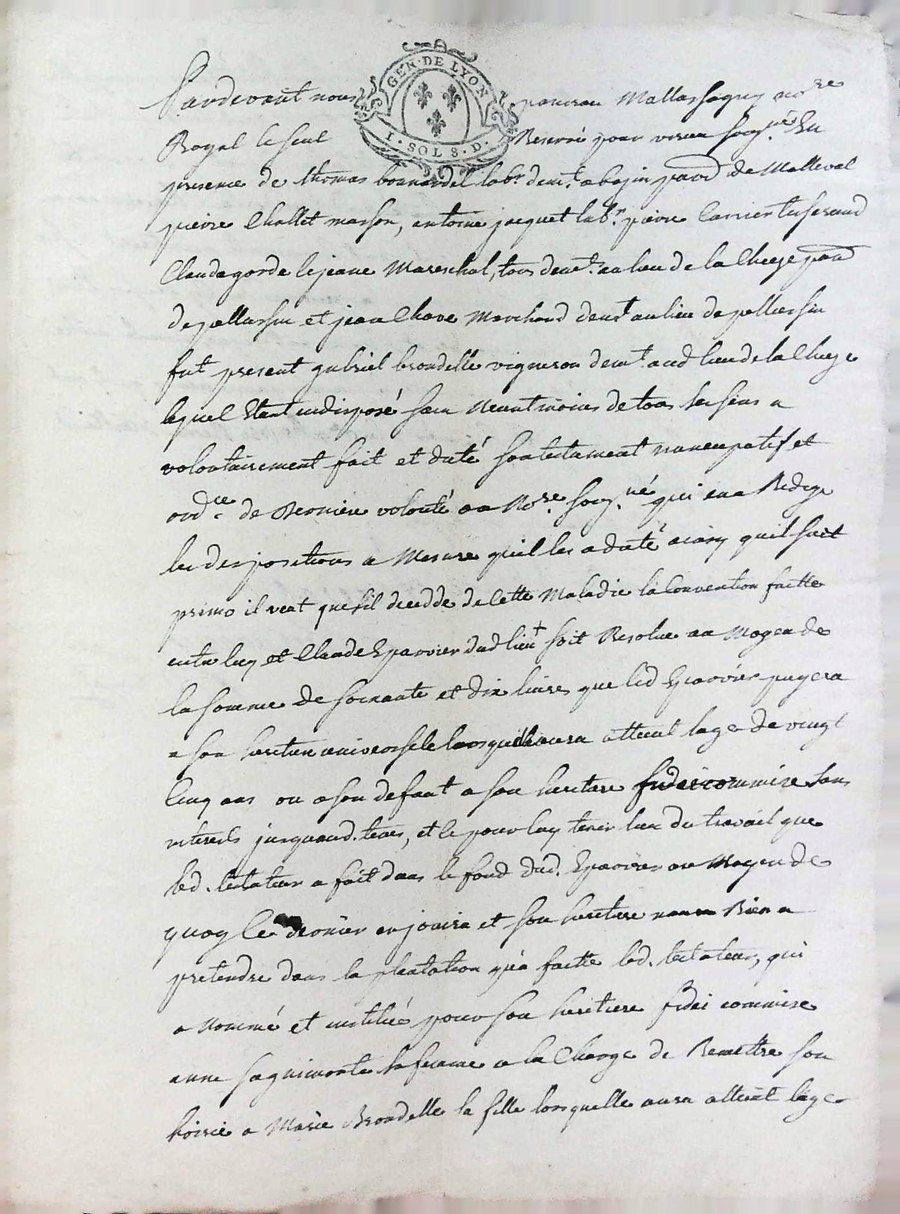 GEN. DE LYON
1. SOL 8. D.
Pardevant nous pancrau Mallassagny no.re
Royal le seul Reservé pour verin soug.né En
presence de thomas bonnardel lab.r dem.t a bazin par.d de Malleval
pierre Challet masson, antoine jacquet lab.r, pierre Carrier tisserand
Claude gorde le jeune Mareschal, tous dem.t au lieu de la Cheze par.d
de pellussin et jean Chave Marchand dem.t au lieu de pellussin
fut present gabriel brondelle vigneron dem.t aud lieu de la Cheze
lequel Etant indisposé sain neantmoins de tous ses sens a
volontairement fait et dicté son testament nuncupatif et
ord.ce de derniere volonté au No.re soug.né qui en a Redigé
les dispositions a Mesure qu'il les a dicté ainsy qu'il suit
primo il veut que s'il decedde de Cette Maladie la Convention faitte
entre luy et Claude Eparvier dud lieu + soit Resolue au Moyen de
la somme de soixante et dix livres que led Eparvier payera
a son heritiere universelle lorsquelle aura atteint l'age de vingt
Cinq ans ou a son defaut a son heritiere fideicommise sans
interets jusquaud. tems, et ce pour luy tenir lieu du travail que
led. testateur a fait dans le fond dud. Eparvier au Moyen de
quoy le dernier en jouira et son heritiere naura Rien a
pretendre dans la plentation qu'a faitte led. testateur, qui
a nommé et institué pour son heritiere fidei commise
anne saquimonte sa femme a la Charge de Remettre son
hoirie a Marie Brondelle sa fille lorsquelle aura atteint l'age